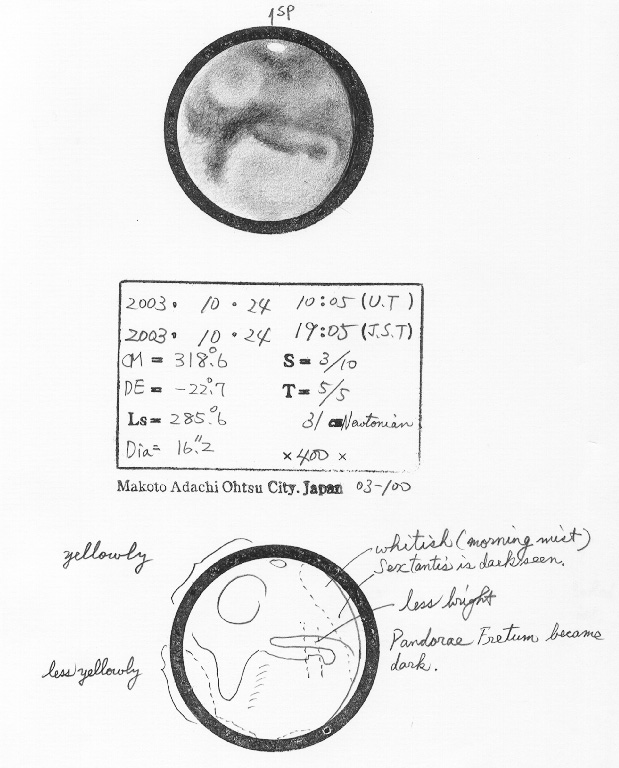 SP
2003. 10. 24 10:05 (U.T)
2003. 10. 24 19:05 (J.S.T)
CM = 318°.6 S = 3/10
DE = -22°.7 T = 5/5
Ls = 285°.6 31 cm Newtonian
Dia = 16".2 ×400 ×
Makoto Adachi Ohtsu City. Japan 03-100
yellowly
whitish (morning mist)
Sextantis is dark seen.
less bright
Pandorae Fretum became
dark.
less yellowly